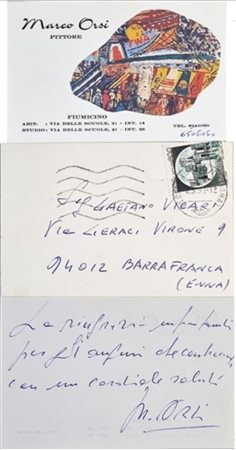 Marco Orsi
PITTORE
FIUMICINO
ABIT. : VIA DELLE SCUOLE, 21 - INT. 14
STUDIO: VIA DELLE SCUOLE, 21 - INT. 20
TEL.
Sig GAETANO VICARI
Via GERACI VIRONE 9
94012 BARRAFRANCA
(ENNA)
La ringrazio
per gli auguri
con un cordiale saluti
M. Orsi